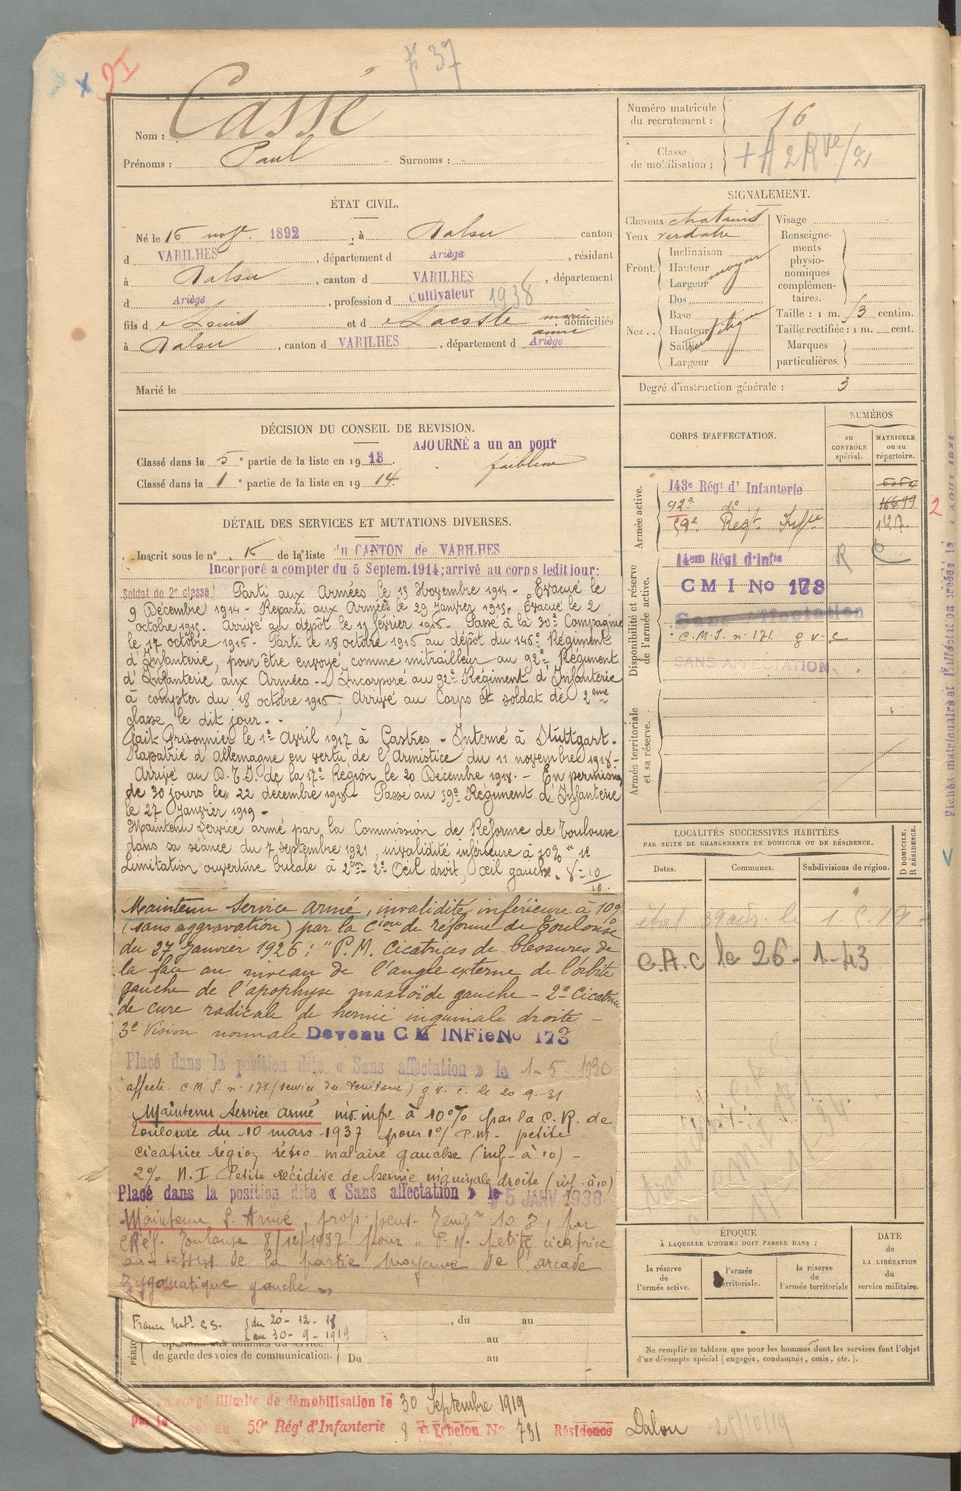 Nom : Cassé
Prénoms : Paul Surnoms :
Numéro matricule du recrutement : 16
Classe de mobilisation :
ÉTAT CIVIL.
Né le 16 1892, à Dalou canton
d VARILHES, département d Ariège, résidant
à Dalou, canton d VARILHES, département
d Ariège, profession d Cultivateur 1938
fils d e Louis et d e marie anne domiciliés
à Dalou, canton d VARILHES, département d Ariège
Marié le
SIGNALEMENT.
Cheveux chatains
Yeux verdatre
Front.
Inclinaison
Hauteur moyen
Largeur
Nez..
Dos
Base
Hauteur
Saillie
Largeur
Visage
Renseignements physionomiques complémentaires.
Taille : 1 m. centim.
Taille rectifiée : 1 m. cent.
Marques particulières.
Degré d'instruction générale : 3
DÉCISION DU CONSEIL DE REVISION.
AJOURNÉ a un an pour
Classé dans la 5e partie de la liste en 1913. faiblesse
Classé dans la 1e partie de la liste en 1914.
DÉTAIL DES SERVICES ET MUTATIONS DIVERSES.
Inscrit sous le n° de la liste du CANTON de VARILHES
Incorporé a compter du 5 Septem. 1914; arrivé au corps ledit jour:
Soldat de 2e classe. Parti aux Armées le 13 Novembre 1914 - Évacué le
9 Décembre 1914 - Reparti aux Armées le 29 Janvier 1915. Évacué le 2
octobre 1915. Arrivé au dépôt le 11 février 1916. Passé à la 30e Compagnie
le 17 octobre 1916. Parti le 18 octobre 1916 au dépôt du 146e Régiment
d'Infanterie, pour être envoyé comme mitrailleur au 92e Régiment
d'Infanterie aux Armées - Incorporé au 92e Régiment d'Infanterie
à compter du 18 octobre 1916 - Arrivé au Corps et soldat de 2eme
classe le dit jour. -
Fait Prisonnier le 1er Avril 1917 à - Interné à Stuttgart -
Rapatrié d'Allemagne en vertu de l'Armistice du 11 novembre 1918 -
Arrivé au de la 17e Région le 20 Décembre 1918 - En permission
de 30 jours le 22 décembre 1918 - Passé au 59e Régiment d'Infanterie
le 27 Janvier 1919 -
Maintenu service armé par la Commission de Réforme de Toulouse
dans sa séance du 7 septembre 1921, invalidité inférieure à 10% " 1e
Limitation ouverture bucale à - 2e Œil droit, œil gauche V = 10/10.
Maintenu service armé, invalidité inférieure à 10%
(sans aggravation) par la Cion de réforme de Toulouse
du 27 Janvier 1926 : " P.M. Cicatrices de blessures de
la face au niveau de l'angle externe de l'orbite
gauche de l'apophyse mastoïde gauche - 2° Cicatrice
de cure radicale de hernie inguinale droite -
3° Vision normale Devenu C M INFie No 173
Placé dans la position dite « Sans affectation » le 1-5-1930
affecté C.M.I. n° 171 (service du territoire) g.v.c. le 20 9 31
Maintenu Service armé inv. infre à 10% par la C.R. de
Toulouse du 10 mars 1937 pour 1°/ P.M. petite
cicatrice région rétro malaire gauche (inf - à 10) -
2% N.I Petite récidive de hernie inguinale droite (inf à 10)
Placé dans la position dite « Sans affectation » le 15 JANV 1938
Maintenu S. Armé, prop. pens. tempre 10 %, par
C Réf. Toulouse 8/12/1937 pour « P.M. petite cicatrice
au-dessus de la partie moyenne de l'arcade
zygomatique gauche »
du au
au
de garde des voies de communication. Du au
du 20-12-18
au 30-9-1919
CORPS D'AFFECTATION.
NUMÉROS
AU CONTRÔLE spécial.
MATRICULE ou au répertoire.
Armée active.
143e Régt d'Infanterie
92e do
59e Regt. Inf.ie 127
Disponibilité et réserve de l'armée active.
14em Régt d'Infie R C
C M I No 173
Sans Affectation
C.M.I. n° 171. g v c
SANS AFFECTATION
Armée territoriale et sa réserve.
LOCALITÉS SUCCESSIVES HABITÉES
PAR SUITE DE CHANGEMENTS DE DOMICILE OU DE RÉSIDENCE.
Dates. Communes. Subdivisions de région. D DOMICILE, R RÉSIDENCE.
C.A.C le 26-1-43
ÉPOQUE
À LAQUELLE L'HOMME DOIT PASSER DANS :
la réserve de l'armée active.
l'armée territoriale.
la réserve de l'armée territoriale
DATE de LA LIBÉRATION du service militaire.
Ne remplir ce tableau que pour les hommes dont les services font l'objet
d'un décompte spécial (engagés, condamnés, omis, etc.).
congé illimité de démobilisation le 30 Septembre 1919
59e Régt d'Infanterie 8 Echelon No 731 Résidence Dalou